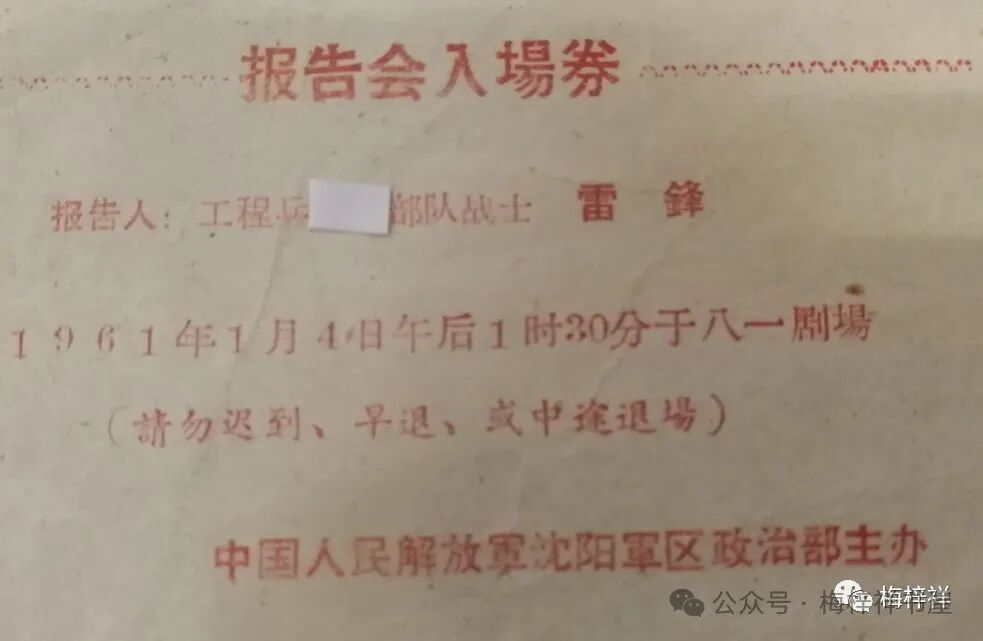 报告会入場券
报告人：工程兵 部队战士 雷鋒
1961年1月4日午后1时30分于八一剧場
（請勿迟到、早退、或中途退場）
中国人民解放軍沈阳軍区政治部主办
梅梓祥
公众号·梅梓祥书屋